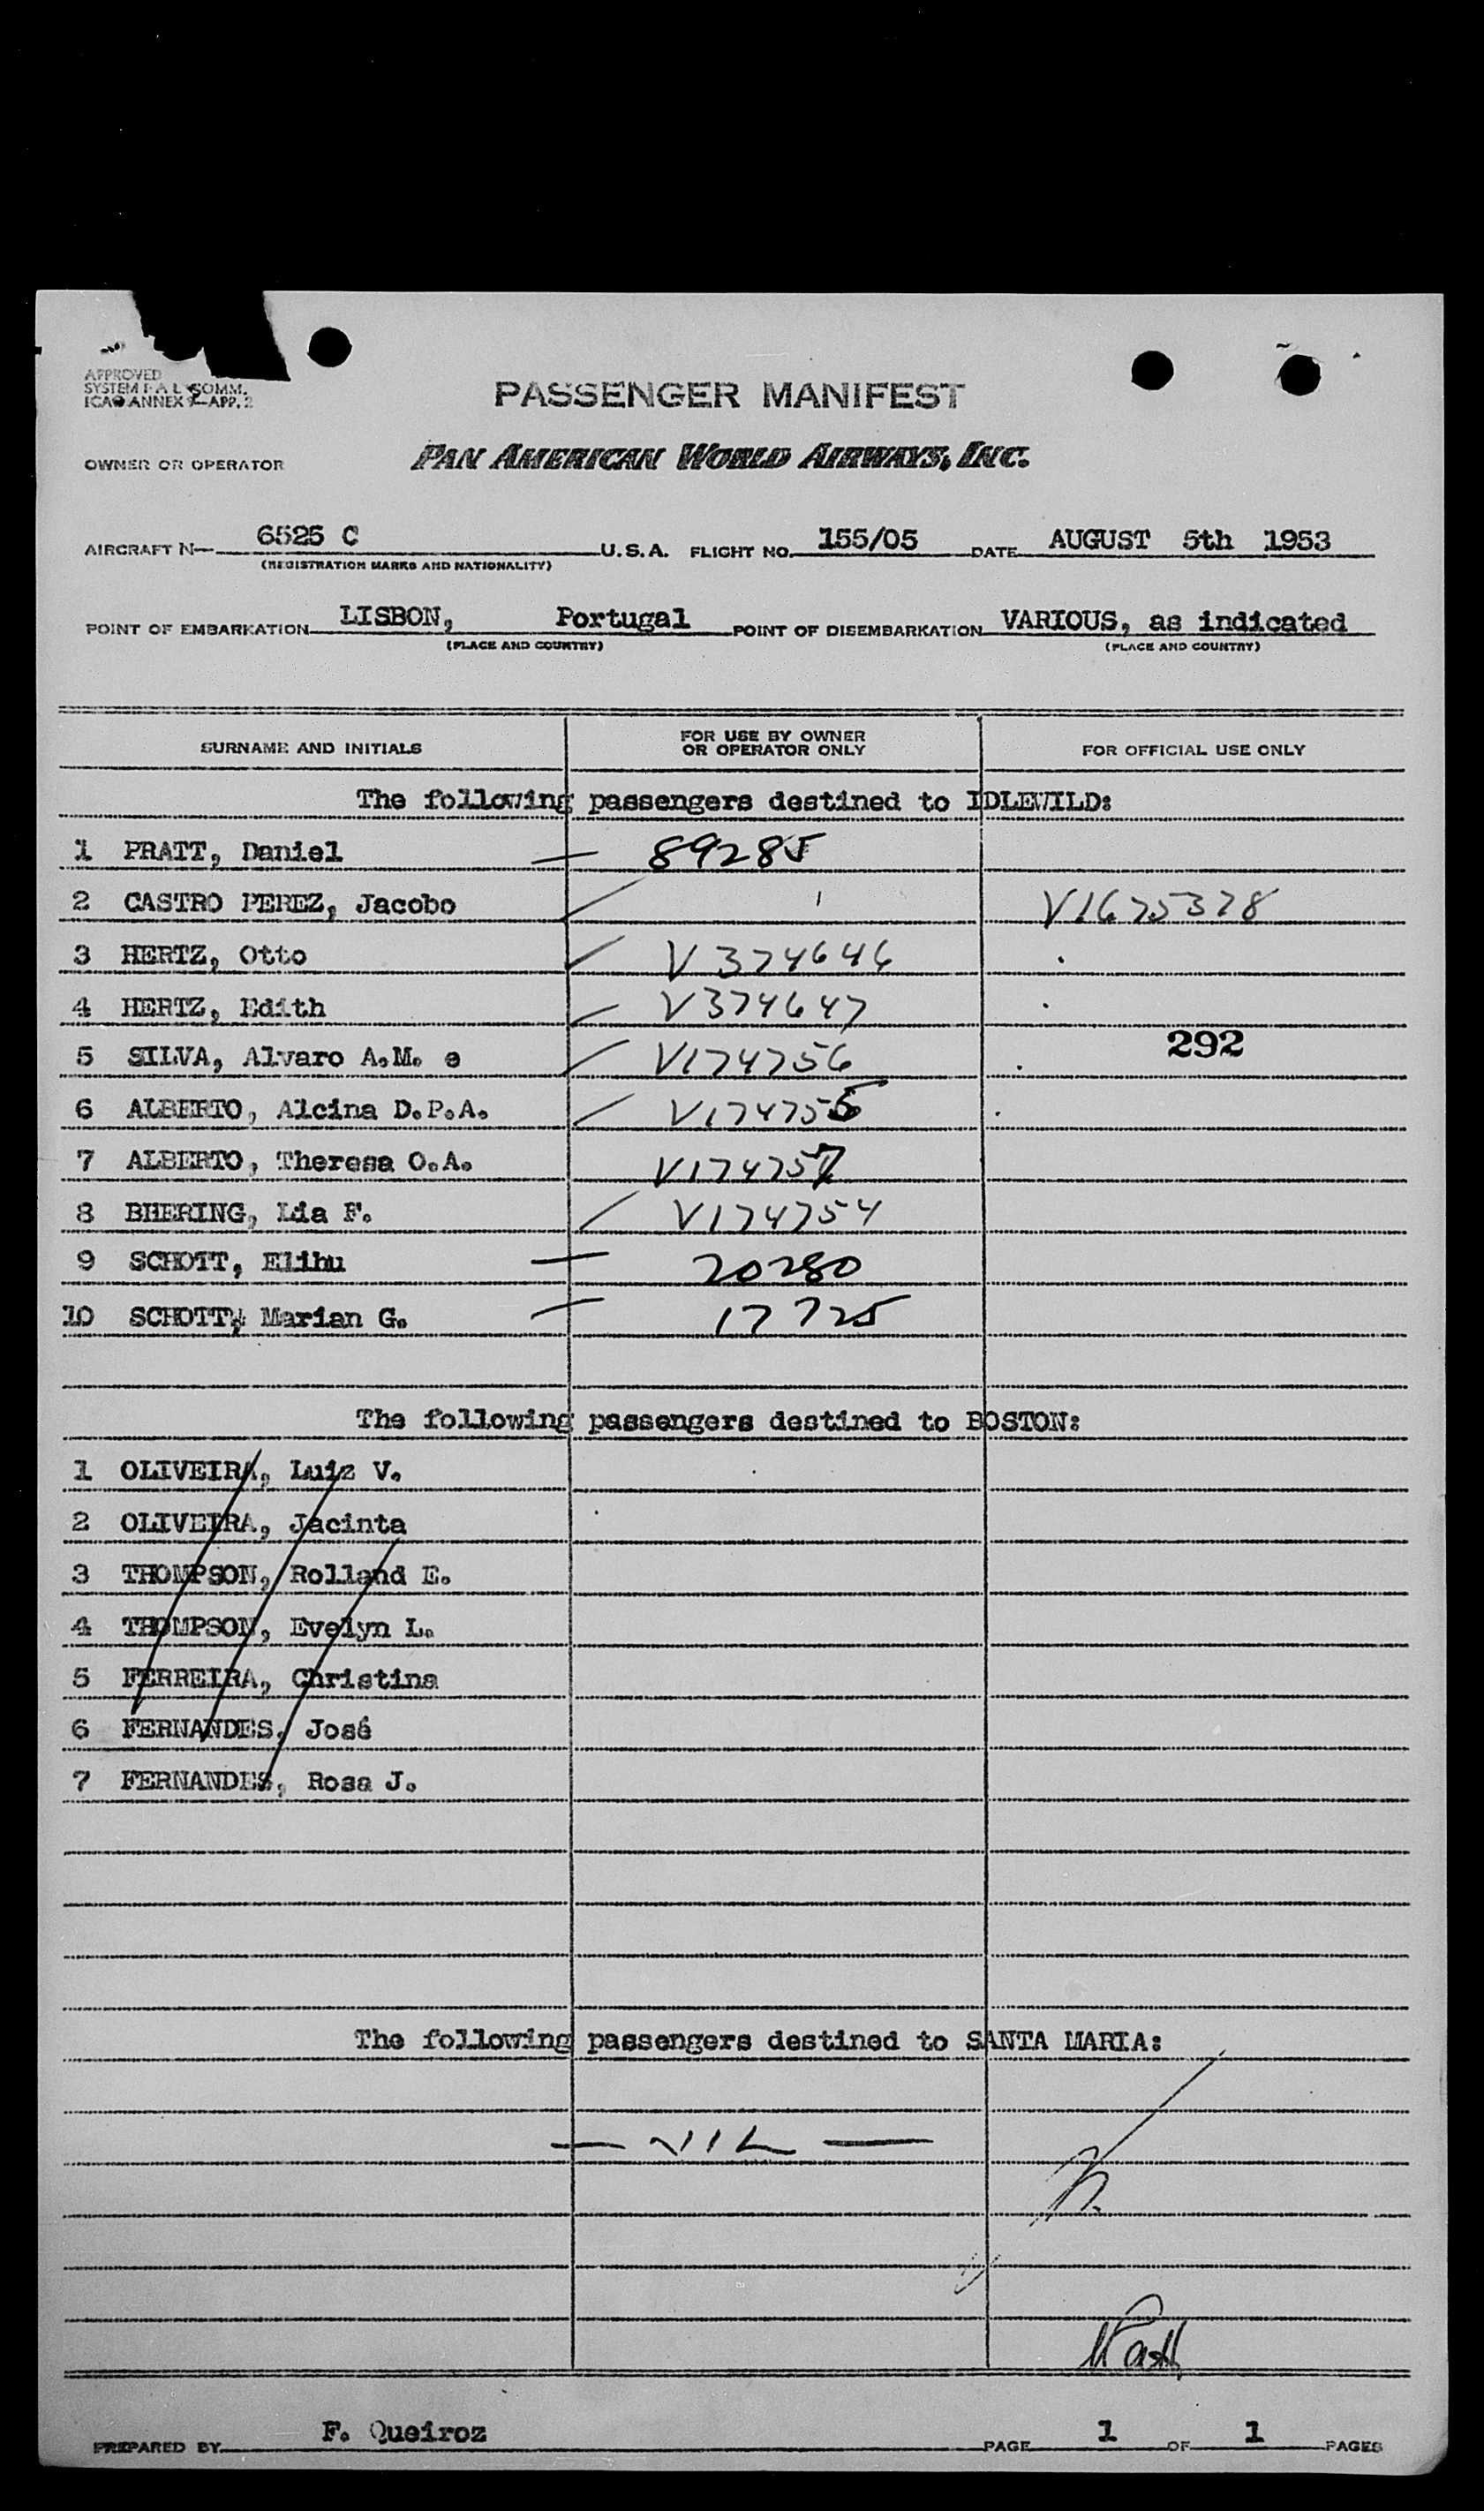 APPROVED
SYSTEM F A L COMM.
ICAO ANNEX 9—APP. 2
PASSENGER MANIFEST
OWNER OR OPERATOR PAN AMERICAN WORLD AIRWAYS, INC.
AIRCRAFT N— 6525 C U.S.A. FLIGHT NO. 155/05 DATE AUGUST 5th 1953
(REGISTRATION MARKS AND NATIONALITY)
POINT OF EMBARKATION LISBON, Portugal POINT OF DISEMBARKATION VARIOUS, as indicated
(PLACE AND COUNTRY) (PLACE AND COUNTRY)
SURNAME AND INITIALS FOR USE BY OWNER OR OPERATOR ONLY FOR OFFICIAL USE ONLY
The following passengers destined to IDLEWILD:
1 PRATT, Daniel — 89285
2 CASTRO PEREZ, Jacobo V1675378
3 HERTZ, Otto V374646
4 HERTZ, Edith V374647
292
5 SILVA, Alvaro A.M. e V174756
6 ALBERTO, Alcina D.P.A. V174755
7 ALBERTO, Theresa O.A. V174757
8 BHERING, Lia F. V174754
9 SCHOTT, Elihu — 20280
10 SCHOTT, Marian G. — 17725
The following passengers destined to BOSTON:
1 OLIVEIRA, Luiz V.
2 OLIVEIRA, Jacinta
3 THOMPSON, Rolland E.
4 THOMPSON, Evelyn L.
5 FERREIRA, Christina
6 FERNANDES, José
7 FERNANDES, Rosa J.
The following passengers destined to SANTA MARIA:
— NIL —
PREPARED BY F. Queiroz PAGE 1 OF 1 PAGES